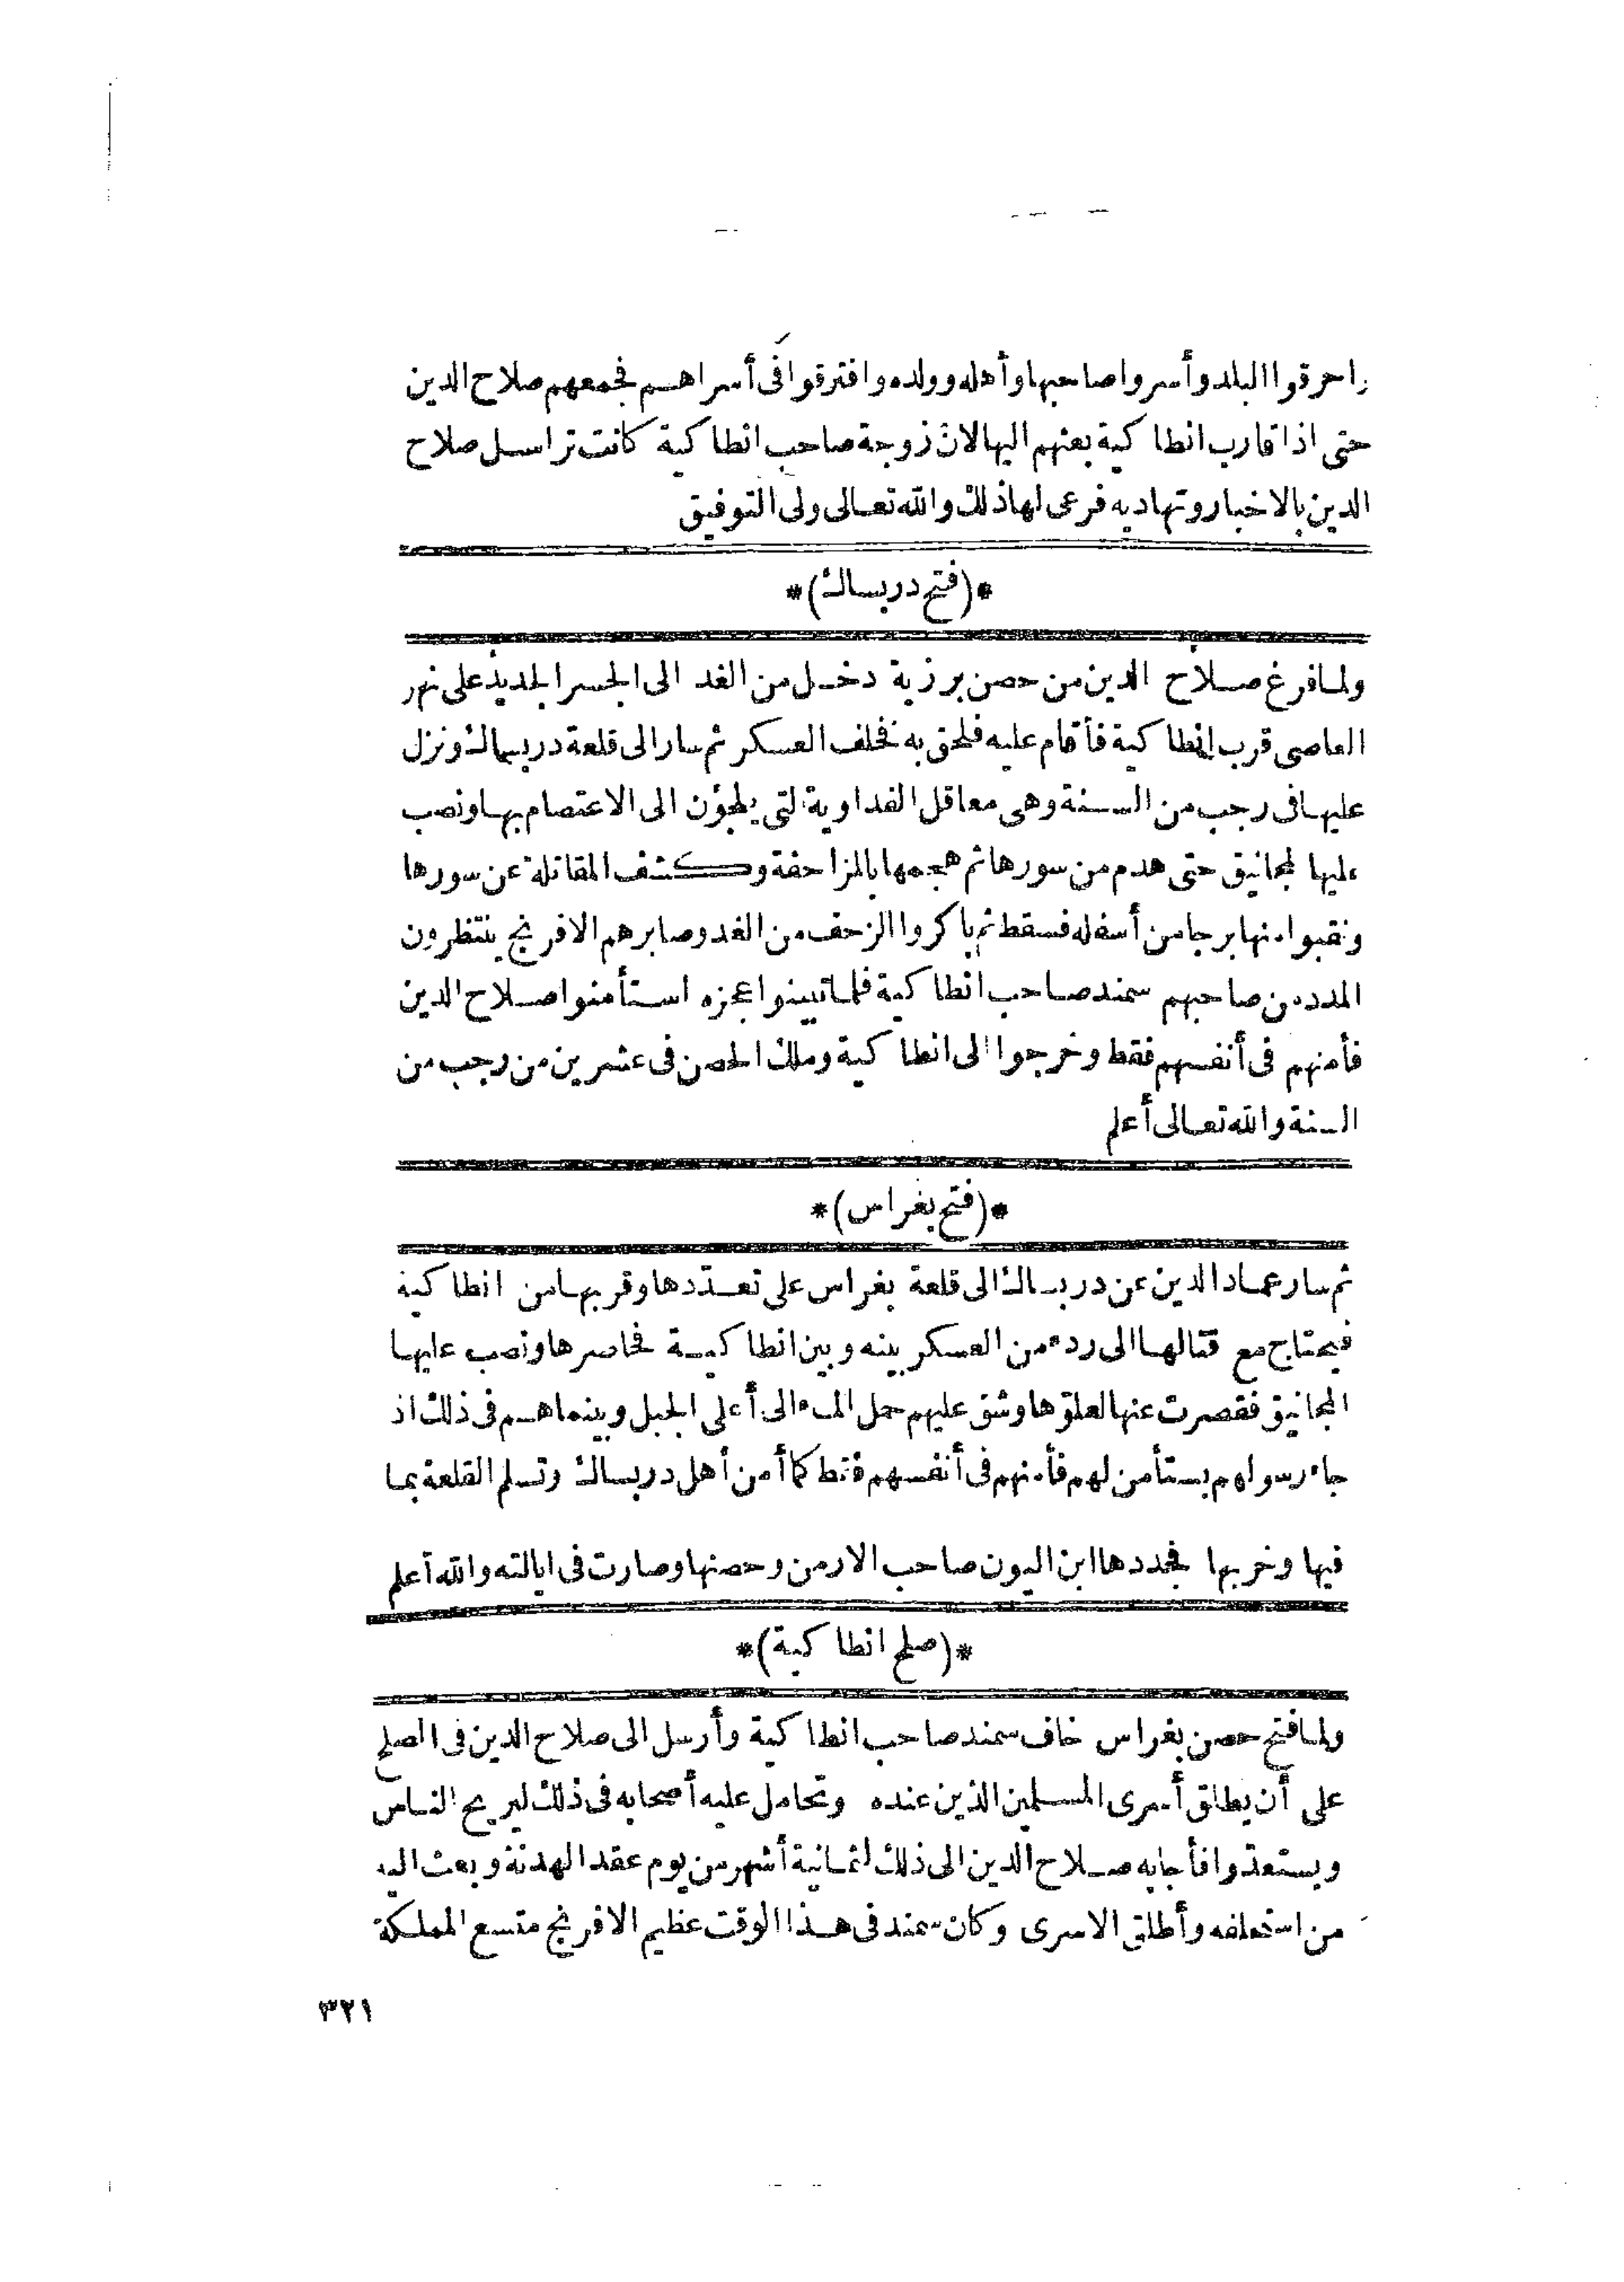 واحرقوا البلد وأسروا صاحبها وأهله وولده وافترقوا فى أسراهم فجمعهم صلاح الدين
حتى اذا قارب انطاكية بعثهم اليها لان زوجة صاحب انطاكية كانت تراسل صلاح
الدين بالاخبار وتهاديه فرعى لها ذلك والله تعالى ولى التوفيق
*(فتح دربساك)*
ولما فرغ صلاح الدين من حصن برزية دخل من الغد الى الجسر الجديد على نهر
العاصى قرب انطاكية فأقام عليه فلحق به فخلف العسكر ثم سار الى قلعة دربساك ونزل
عليها فى رجب من السنة وهى معاقل الفداوية التى يلجؤن الى الاعتصام بها ونصب
عليها المجانيق حتى هدم من سورها ثم هجمها بالمزاحفة وكشف المقاتلة عن سورها
ونقبوا منها برجا من أسفله فسقط ثم باكروا الزحف من الغد وصابرهم الافرنج ينتظرون
المدد من صاحبهم سمند صاحب انطاكية فلما تبينوا عجزه استأمنوا صلاح الدين
فأمنهم فى أنفسهم فقط وخرجوا الى انطاكية وملك الحصن فى عشرين من رجب من
السنة والله تعالى أعلم
*(فتح بغراس)*
ثم سار عماد الدين عن دربساك الى قلعة بغراس على تعددها وقربها من انطاكية
فيحتاج مع قتالها الى ردء من العسكر بينه وبين انطاكية فحاصرها ونصب عليها
المجانيق فقصرت عنها لعلوها وشق عليهم حمل الماء الى أعلى الجبل وبينما هم فى ذلك اذ
جاء رسولهم يستأمن لهم فأمنهم فى أنفسهم فقط كما أمن أهل دربساك وتسلم القلعة بما
فيها وخربها فجددها ابن اليون صاحب الارمن وحصنها وصارت فى ايالته والله أعلم
*(صلح انطاكية)*
ولما فتح حصن بغراس خاف سمند صاحب انطاكية وأرسل الى صلاح الدين فى الصلح
على أن يطلق أسرى المسلمين الذين عنده وتحامل عليه أصحابه فى ذلك ليريح الناس
ويستعدوا فأجابه صلاح الدين الى ذلك لثمانية أشهر من يوم عقد الهدنة وبعث اليه
من استحلفه وأطلق الاسرى وكان سمند فى هذا الوقت عظيم الافرنج متسع المملكة
٣٢١